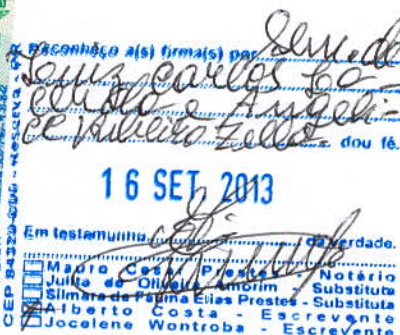 Reconheço a(s) firma(s) por
Luiz Carlos
e
Ribeiro dou fé.
16 SET 2013
Em testemunho da verdade.
Mauro Cesar Prestes - Notário
Julita de Oliveira Amorim Substituta
Silmara de Fátima Elias Prestes - Substituta
Alberto Costa - Escrevente
Jocelene Wontroba - Escrevente
CEP 84320-000 - Reserva - PR